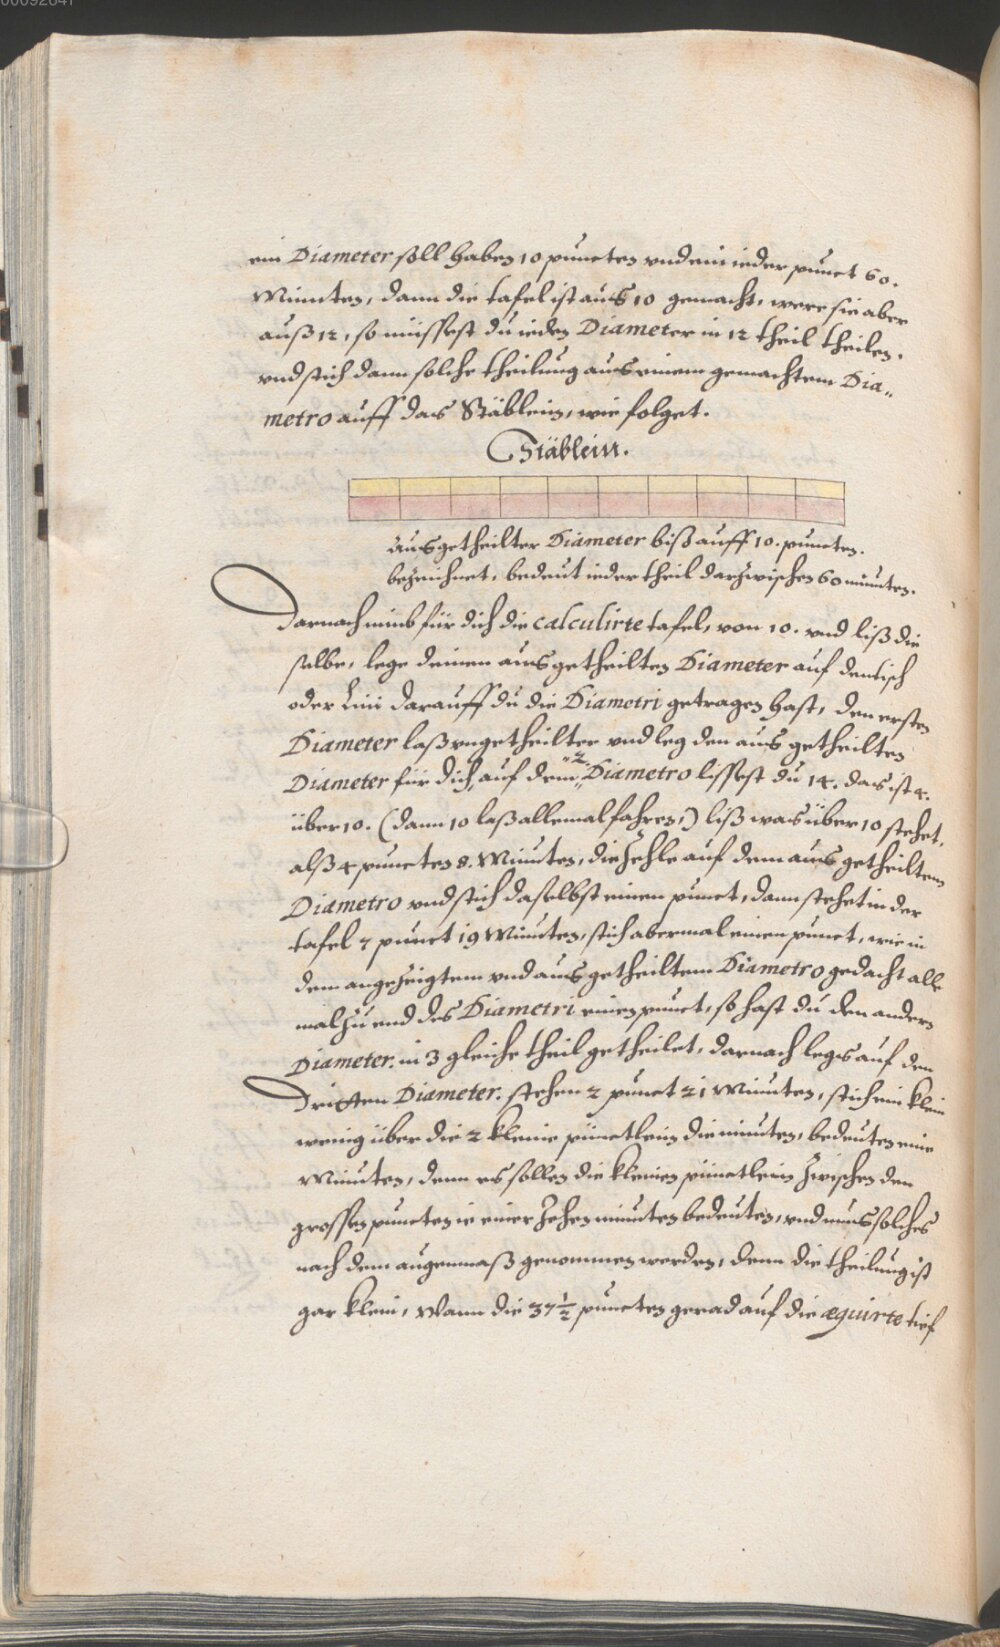 00092841
ein Diameter soll haben 10 puncten vnd ein ieder punct 60.
Minuten, dann die tafel ist aus 10 gemacht, were sie aber
auß 12, so müssest du ieden Diameter in 12 theil theilen.
vnd stich dann solche theilung aus einem gemachtem Dia„
metro auff das Stäblein, wie folget.
Stäblein.
ausgetheilter Diameter biß auff 10. puncten.
bezeichnet, bedeut ieder theil darzwischen 60 minuten.
Darnach nimb für dich die calculirte tafel, von 10. vnd liß die
selbe, lege deinen ausgetheilten Diameter auf den tisch
oder Lini darauff du die Diametri getragen hast, den ersten
Diameter laß vngetheilter vnd leg den ausgetheilten
Diameter für dich, auf dem „2„ Diametro lissest du 14. das ist 4.
über 10. (dann 10 laß allemal fahren,) liß was über 10 stehet,
alß 4 puncten 8. Minuten, die zehle auf dem ausgetheiltem
Diametro vnd stich daselbst einen punct, dann stehet in der
tafel 7 punct 19 Minuten, stich abermal einen punct, wie in
dem angezeigtem vnd ausgetheiltem Diametro gedacht alle
mal zu end des Diametri einen punct, so hast du den andern
Diameter. in 3 gleiche theil getheilet, darnach legs auf den
Dritten Diameter. stehen 2 punct 21 Minuten, stich ein klein
wenig über die 2 kleine pünctlein die minuten, bedeuten eine
Minuten, denn es sollen die kleinen pünctlein zwischen den
grossen puncten ie einer zehen minuten bedeuten, vnd mus solches
nach dem augenmaß genommen werden, denn die theilung ist
gar klein, Wann die 37½ puncten gerad auf die æquirte tief